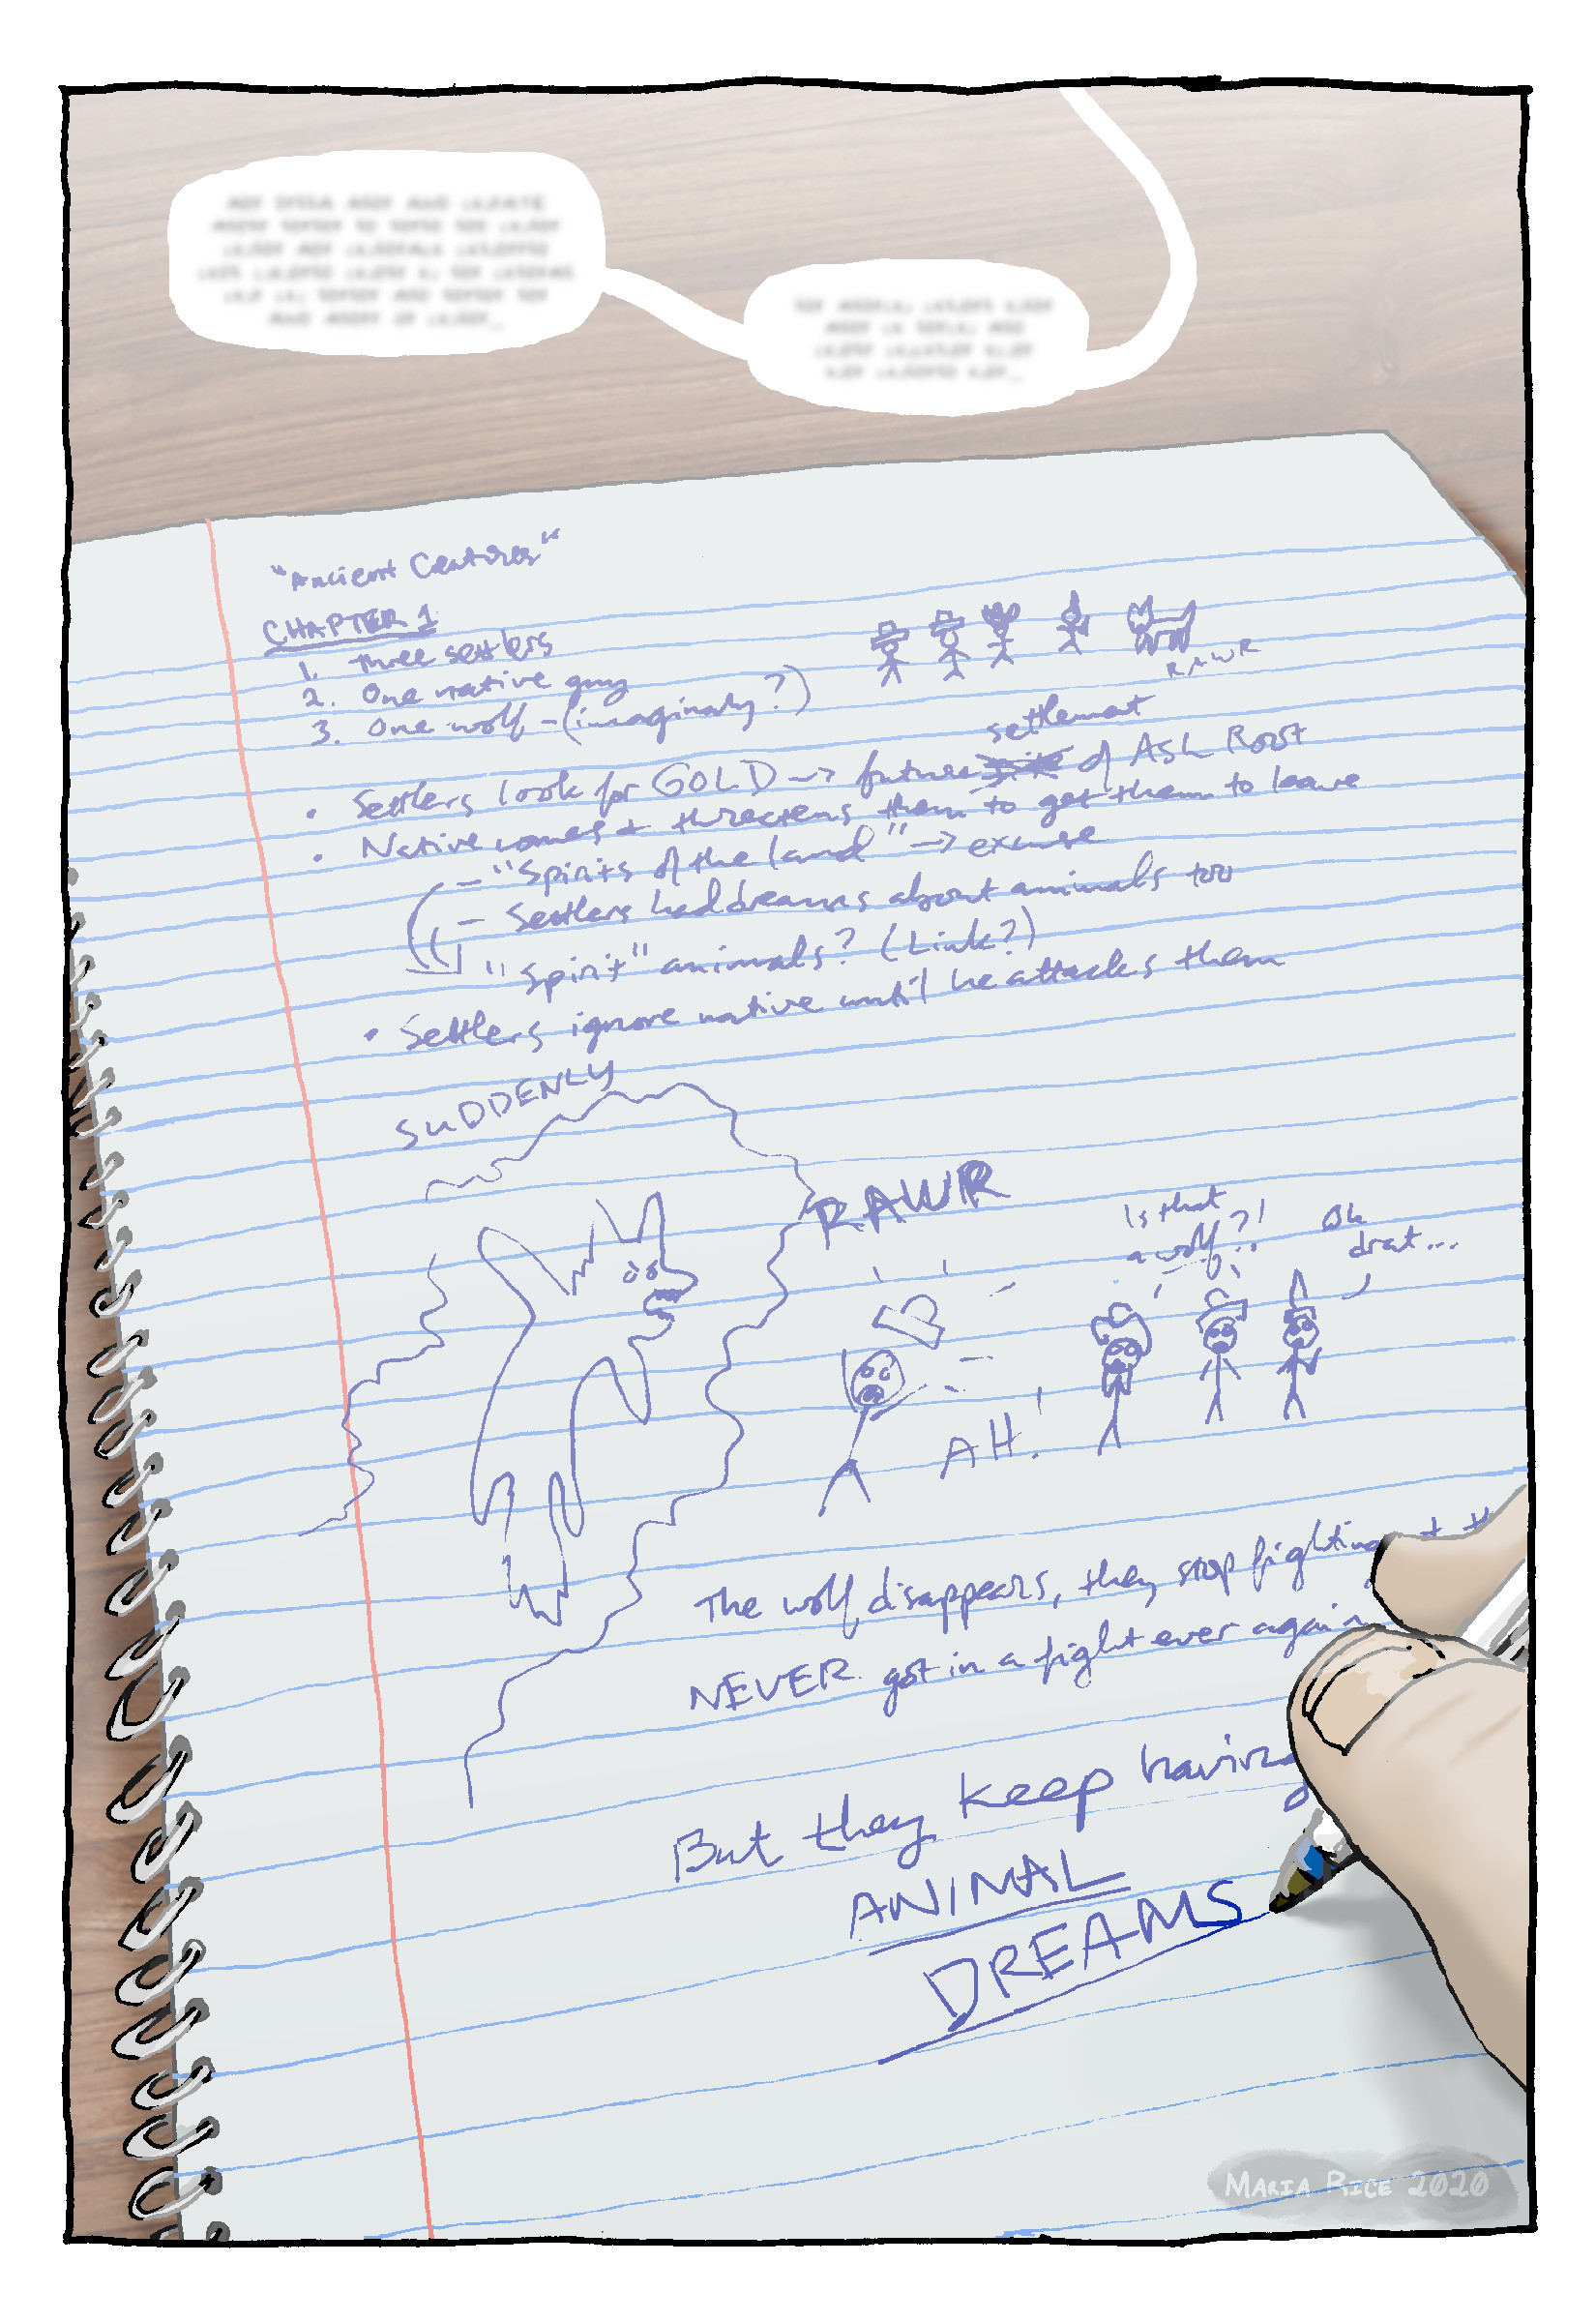 "Ancient Creatures"
CHAPTER 1
1. three settlers
2. One native guy
3. One wolf - (imaginary?)
RAWR
settlement
• Settlers look for GOLD → future site of ASL Roost
• Native comes + threatens them to get them to leave
- "Spirits of the land" → excuse
- Settlers had dreams about animals too
"Spirit" animals? (Link?)
• Settlers ignore native until he attacks them
SUDDENLY
RAWR
Is that
a wolf?!
Oh
drat...
AH!
The wolf disappears, they stop fighting
NEVER got in a fight ever again
But they keep having
ANIMAL
DREAMS
MARIA RICE 2020